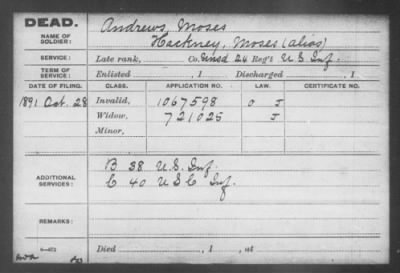 DEAD.
Andrews, Moses
NAME OF SOLDIER:
Hackney, Moses (alias)
SERVICE:
Late rank, Co. Unasd 24 Reg't U S Inf.
TERM OF SERVICE:
Enlisted , 1 Discharged , 1
DATE OF FILING. CLASS. APPLICATION NO. LAW. CERTIFICATE NO.
1891 Oct. 28 Invalid, 1067598 O J
Widow, 721025 J
Minor,
ADDITIONAL SERVICES:
B 38 U.S. Inf
C 40 U S C Inf.
REMARKS:
Died , 1 , at